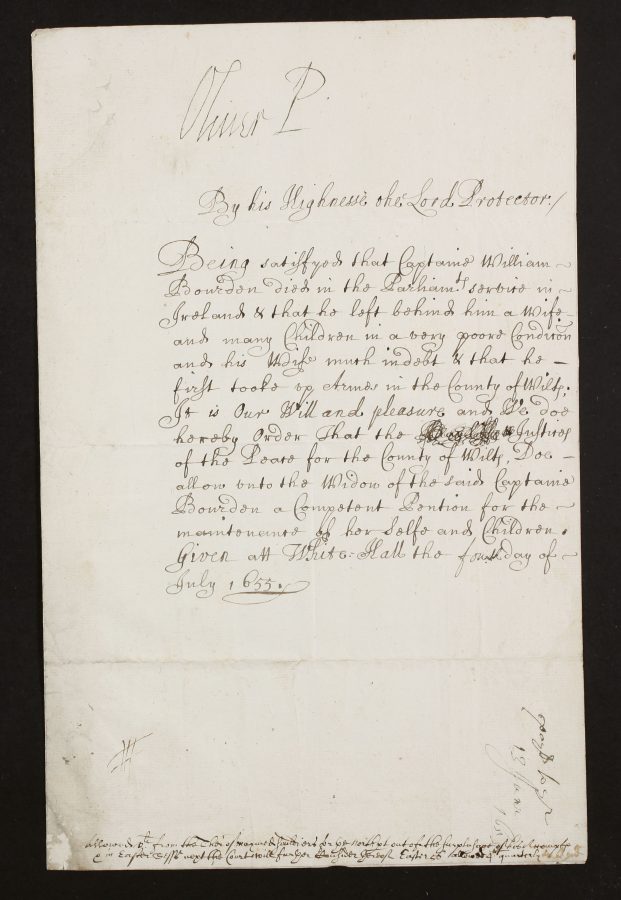 Oliver P
By his Highnesse the Lord Protector./
Being satisfyed that Captaine William
Bourden died in the Parliamts service in
Ireland & that he left behind him a Wife
and many Children in a very poore Condicon
and his Wife much indebt & that he
first tooke vp Armes in the County of Wilts;
It is Our Will and pleasure and We doe
hereby Order That the Justices
of the Peace for the County of Wilts, Doe
allow vnto the Widow of the said Captaine
Bourden a Competent Pention for the
maintenance of her Selfe and Children.
Given att White-Hall the fourth day of
July 1655.
allowed from the of for out of the
Easter next the Court will further Easter